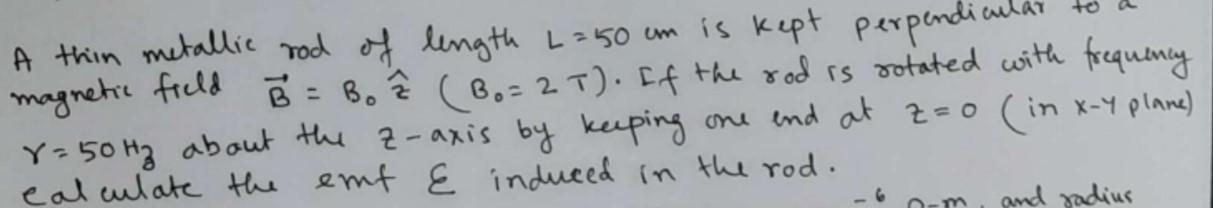 A thin metallic rod of length L = 50 cm is kept perpendicular to a
magnetic field B⃗ = B₀ ẑ (B₀ = 2 T). If the rod is rotated with frequency
γ = 50 Hz about the z-axis by keeping one end at z = 0 (in x-y plane)
calculate the emf ε induced in the rod.
-6 Ω-m. and radius